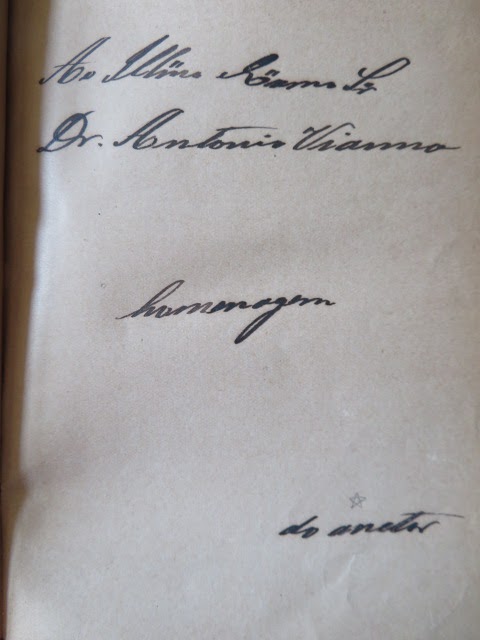 Ao Illmo Exmo Sr
Dr. Antonio Vianna
homenagem
do auctor